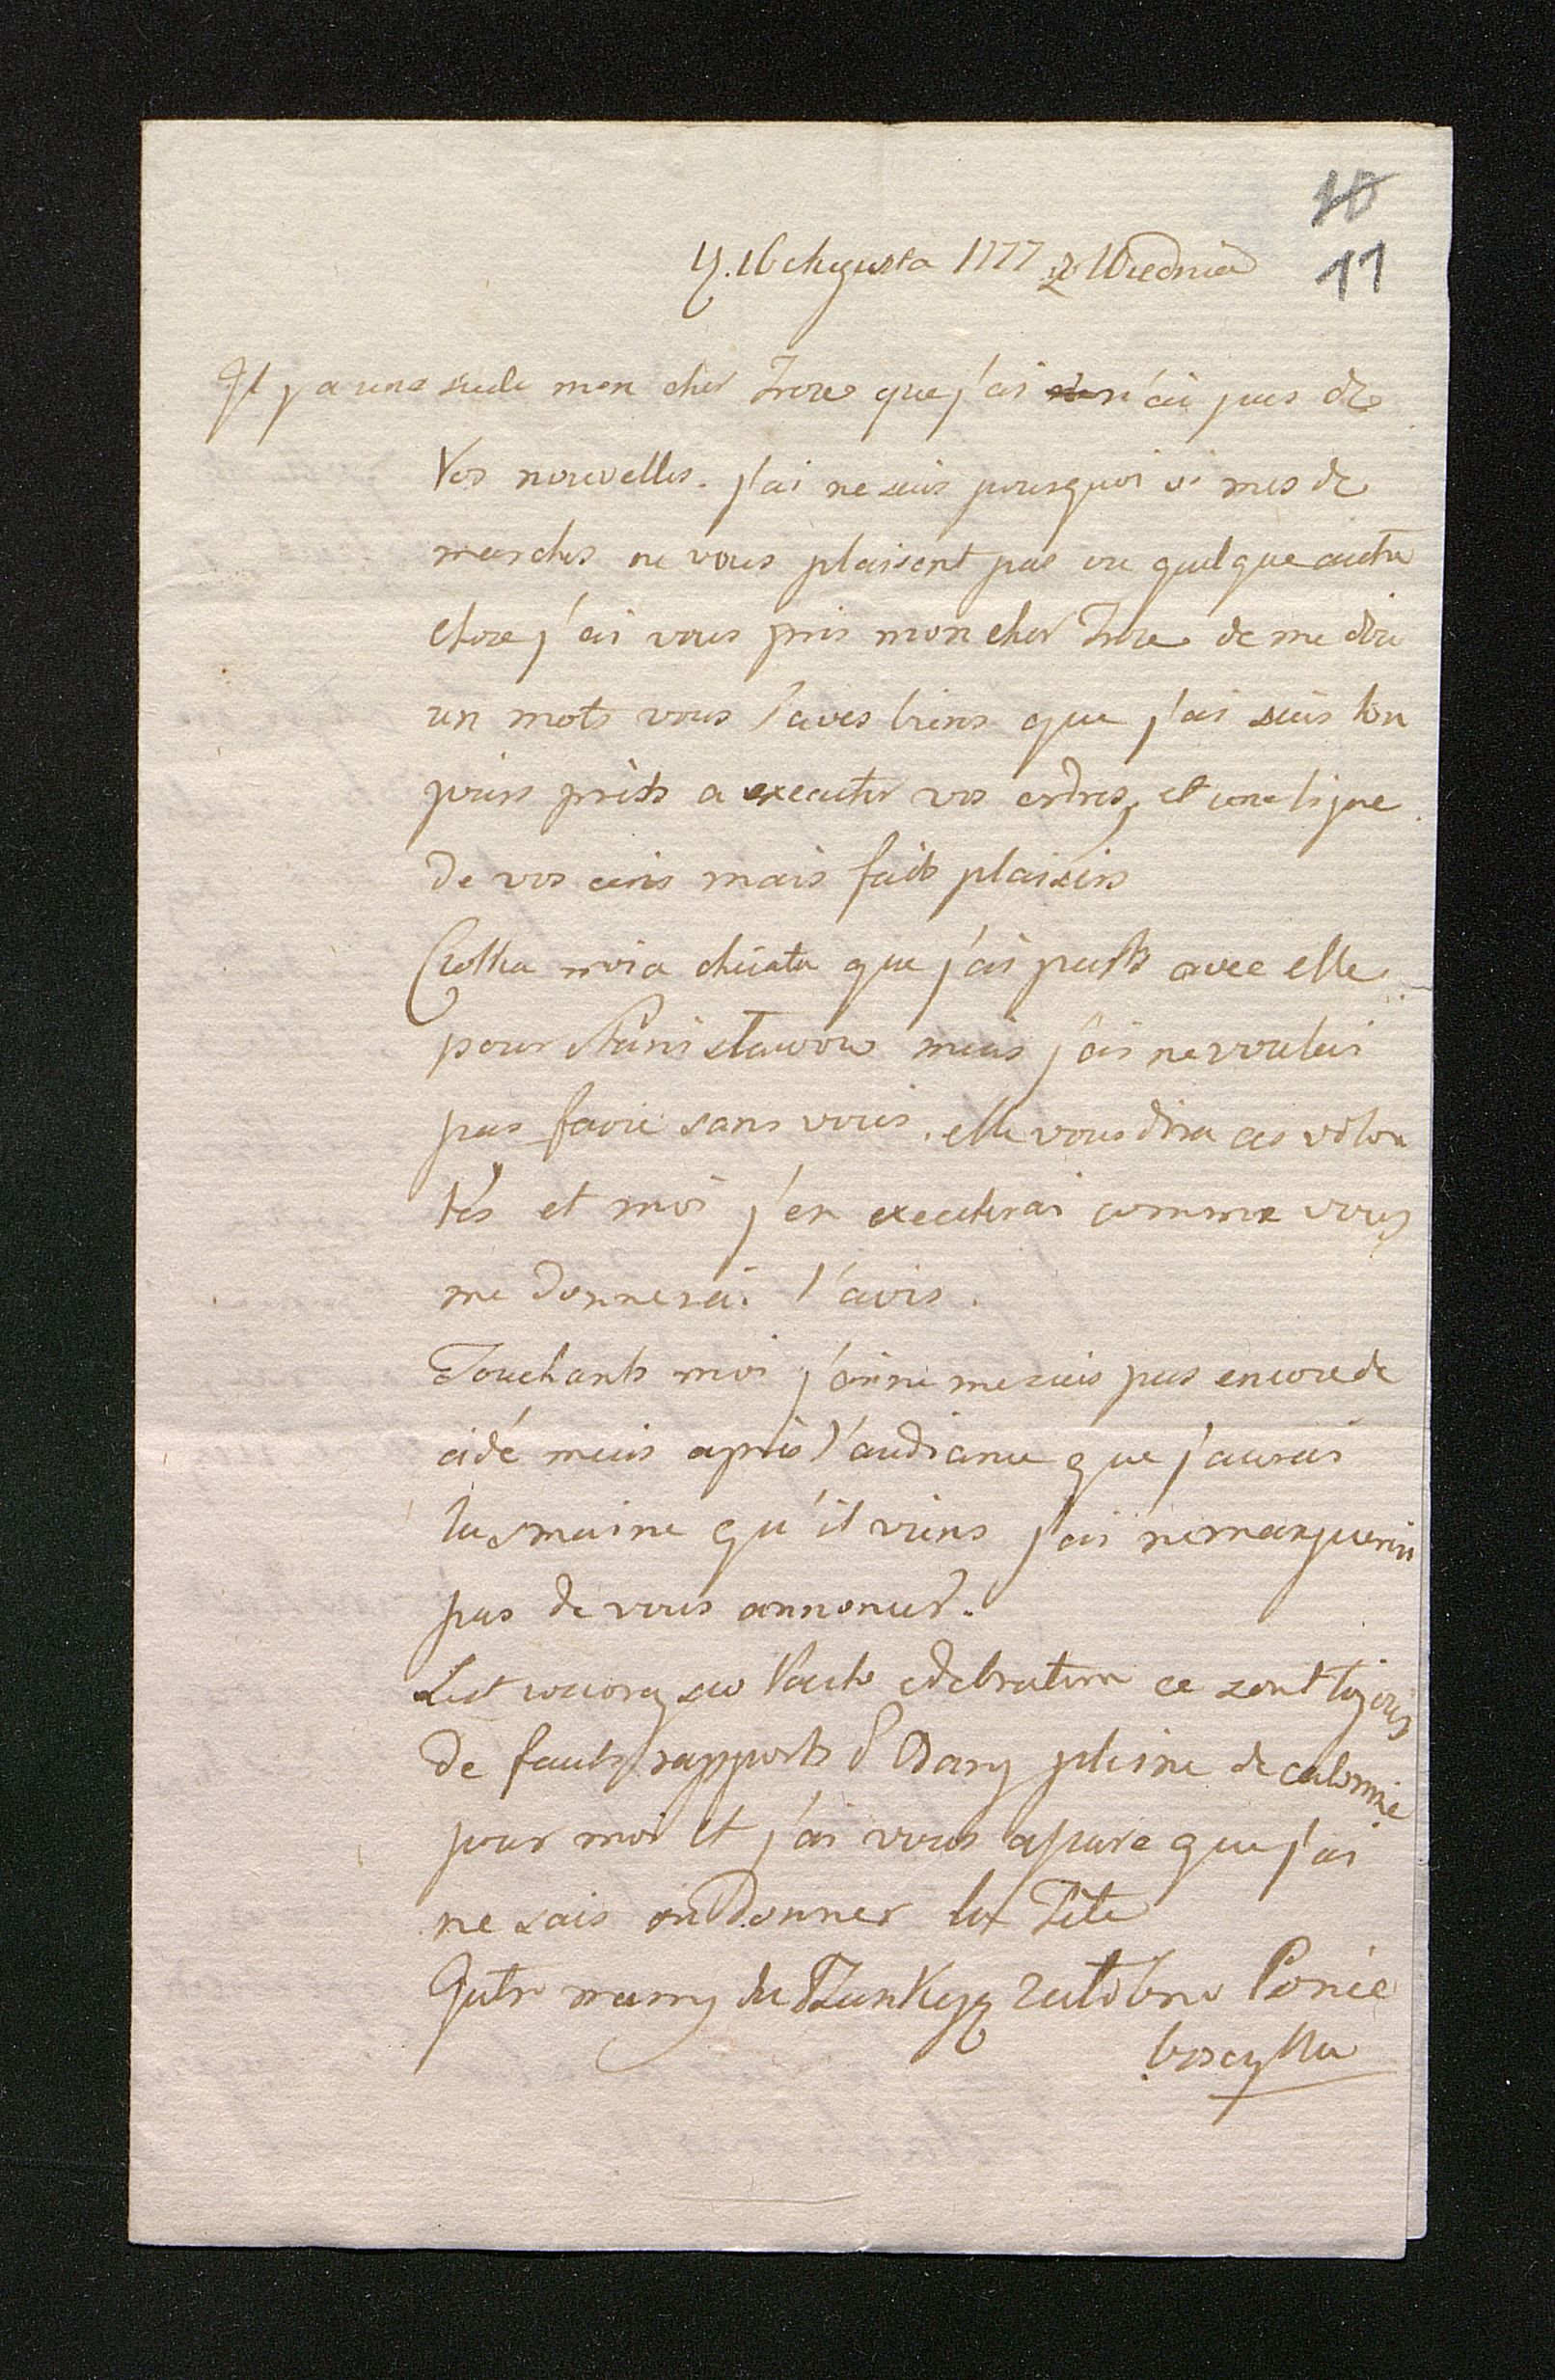 10
11
16 Augusta 1777 z Wiednia
Il y a une siecle mon cher frere que j'ai n'ai pas de
Vos nouvelles. j'ai ne sais pourquoi si mes de
marches ne vous plaisent pas ou quelque autre
chose j'ai vous pris mon cher frere de me dire
un mots vous savés biens que j'ai suis tou
jours prets a executer vos ordres, et une ligne
de vos avis mais faits plaisirs
Cotka moia que j'ai passe avec elle
pour Stanisławow mais j'ai ne voulais
pas favie sans vous. elle vous dira ces volon
tés et moi j'en executerai comme vous
me donnerai l'avis.
Touchants moi j'ai ne me suis pas encore de
cidé mais apris l'audiance que j'aurais
la smaine qu'il viens j'ai ne manquerai
pas de vous annoncer.
List ce sont tojours
de faults rapports d' pleine de calomnie
pour moi et j'ai vous assure que j'ai
ne sais ou donner la Tete
Jutro mamy